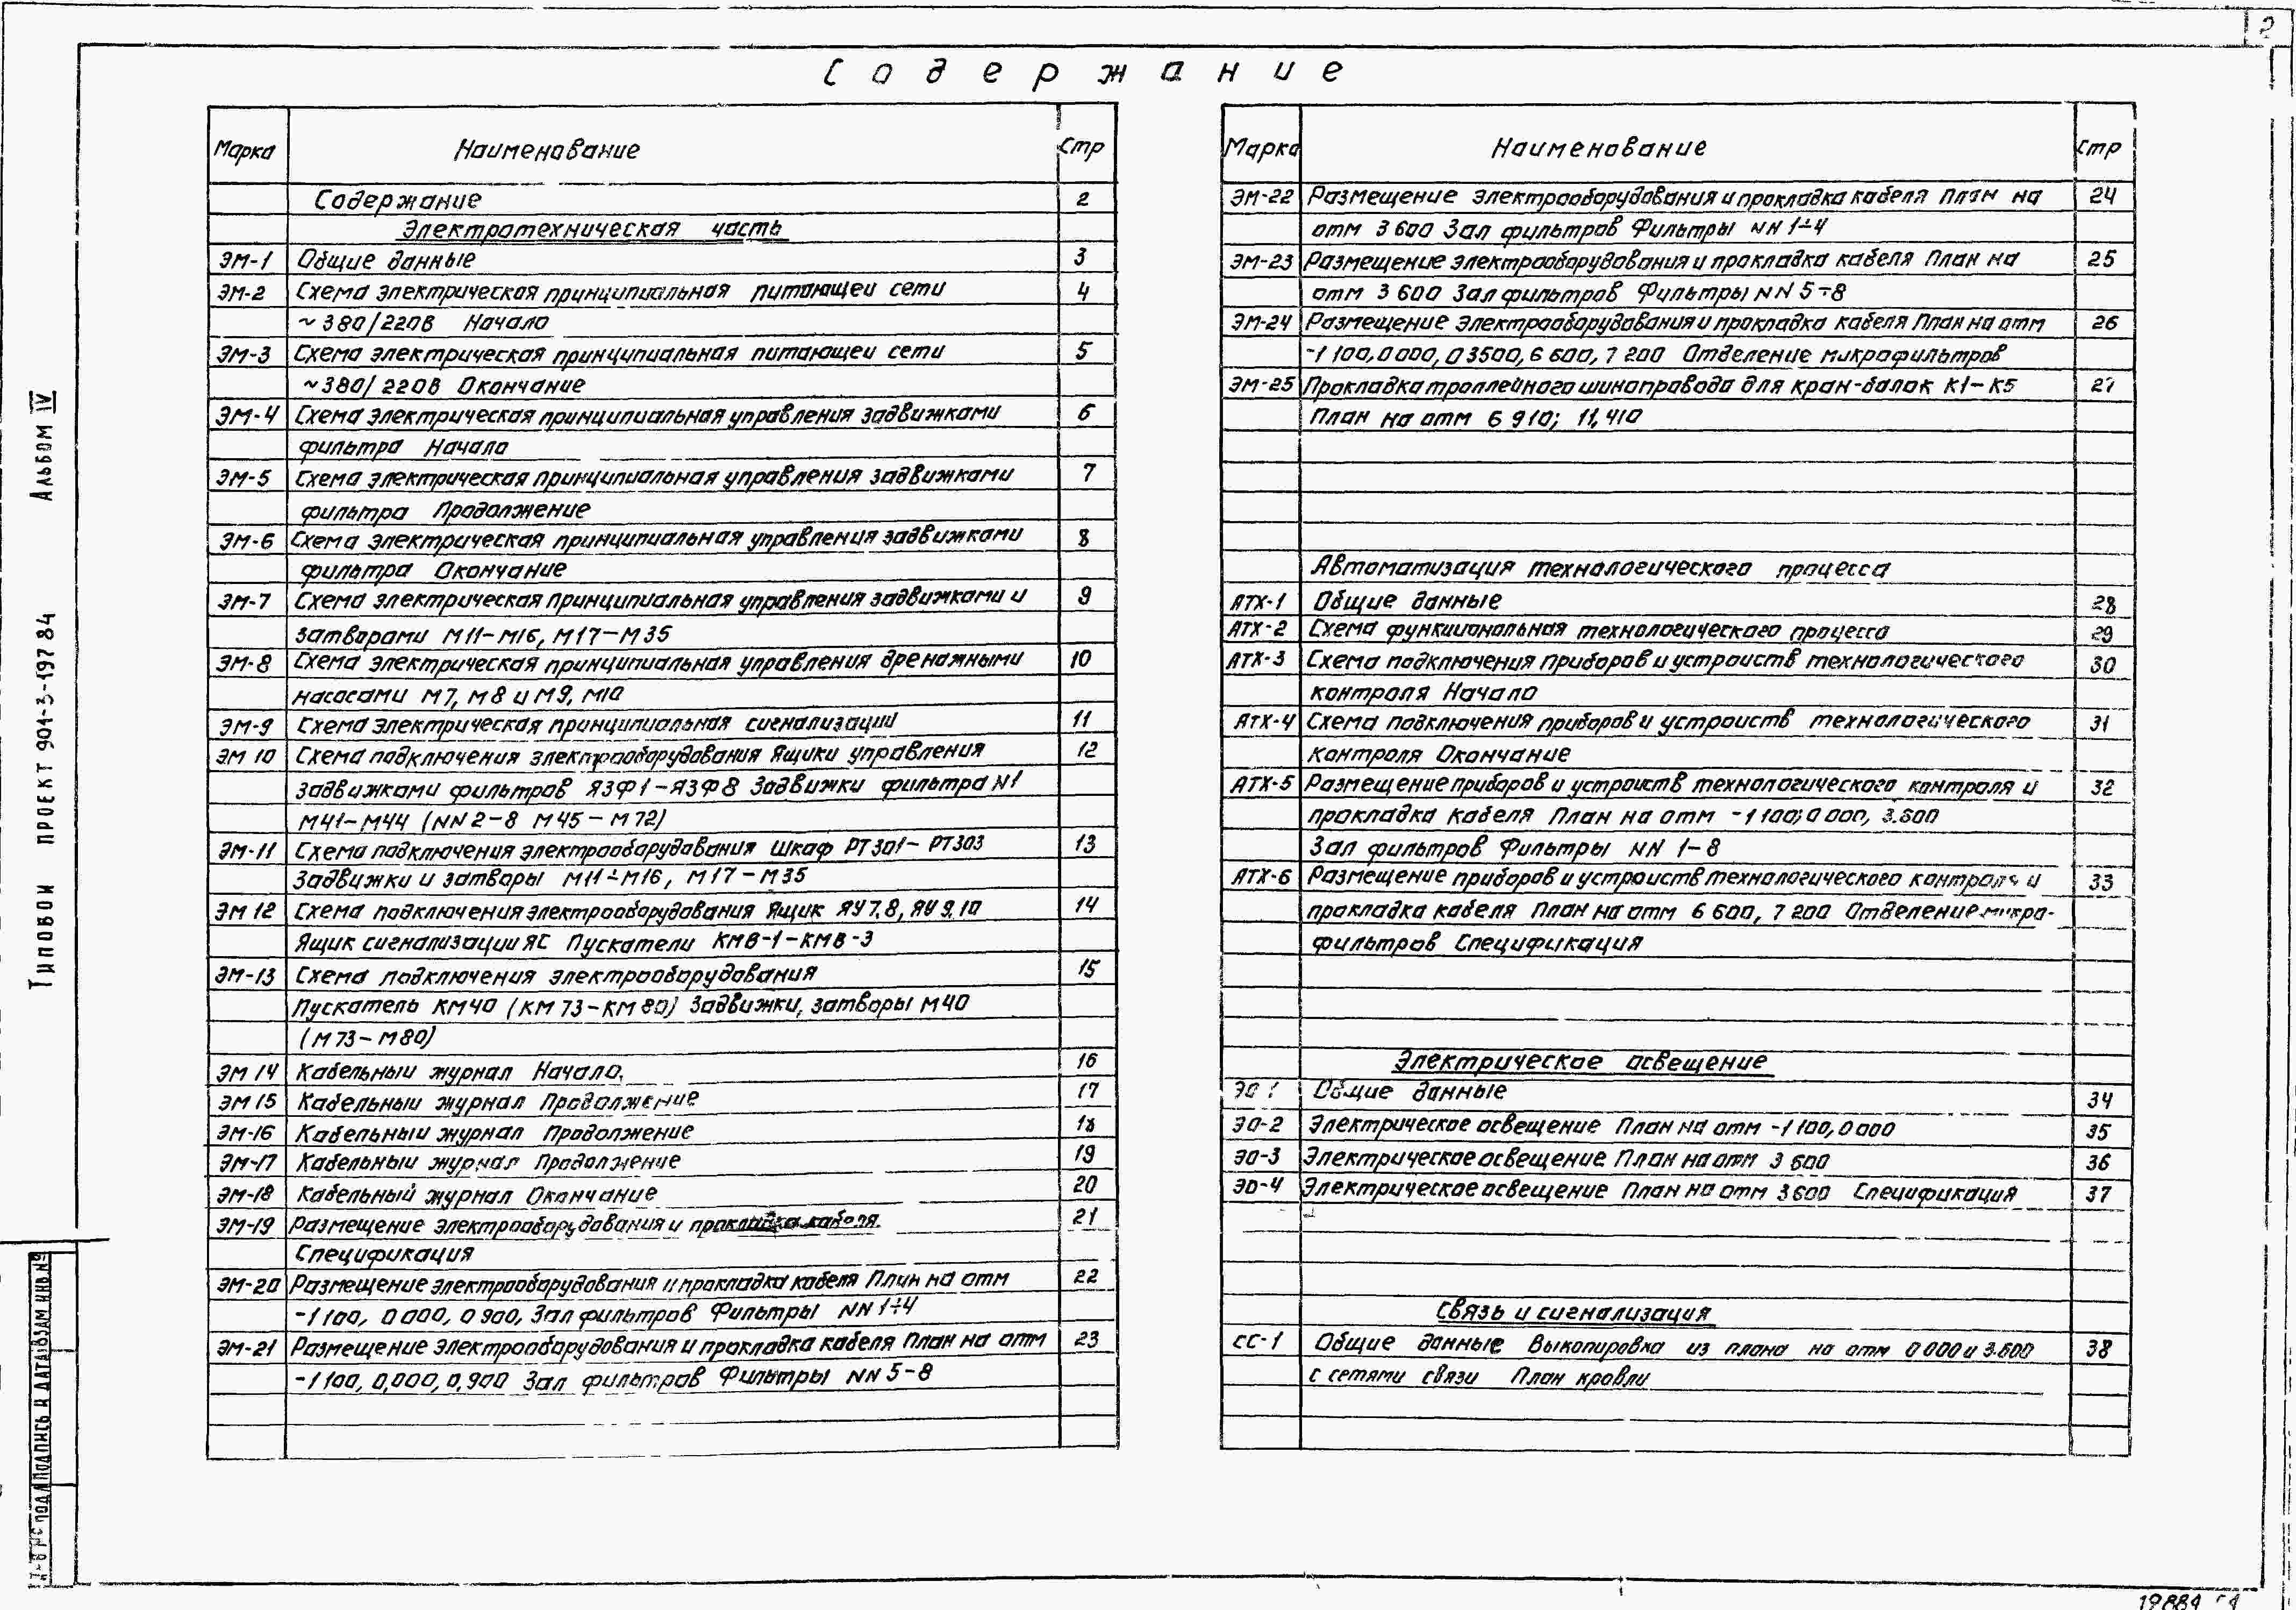 2
Содержание
Марка Наименование Стр
Содержание 2
Электротехническая часть
ЭМ-1 Общие данные 3
ЭМ-2 Схема электрическая принципиальная питающей сети 4
~380/220В Начало
ЭМ-3 Схема электрическая принципиальная питающей сети 5
~380/220В Окончание
ЭМ-4 Схема электрическая принципиальная управления задвижками 6
фильтра Начало
ЭМ-5 Схема электрическая принципиальная управления задвижками 7
фильтра Продолжение
ЭМ-6 Схема электрическая принципиальная управления задвижками 8
фильтра Окончание
ЭМ-7 Схема электрическая принципиальная управления задвижками и 9
затворами М11-М16, М17-М35
ЭМ-8 Схема электрическая принципиальная управления дренажными 10
насосами М7, М8 и М9, М10
ЭМ-9 Схема электрическая принципиальная сигнализации 11
ЭМ 10 Схема подключения электрооборудования Ящики управления 12
задвижками фильтров ЯЗФ1-ЯЗФ8 Задвижки фильтра N1
М41-М44 (NN 2-8 М45-М72)
ЭМ-11 Схема подключения электрооборудования Шкаф РТ301-РТ303 13
Задвижки и затворы М11÷М16, М17-М35
ЭМ 12 Схема подключения электрооборудования Ящик ЯУ7.8, ЯУ9.10 14
Ящик сигнализации ЯС Пускатели КМВ-1-КМВ-3
ЭМ-13 Схема подключения электрооборудования 15
Пускатель КМ40 (КМ73-КМ80) Задвижки, затворы М40
(М73-М80)
ЭМ 14 Кабельный журнал Начало. 16
ЭМ 15 Кабельный журнал Продолжение 17
ЭМ-16 Кабельный журнал Продолжение 18
ЭМ-17 Кабельный журнал Продолжение 19
ЭМ-18 Кабельный журнал Окончание 20
ЭМ-19 Размещение электрооборудования и прокладка кабеля. 21
Спецификация
ЭМ-20 Размещение электрооборудования и прокладка кабеля План на отм 22
-1 100, 0 000, 0 900, Зал фильтров Фильтры NN 1÷4
ЭМ-21 Размещение электрооборудования и прокладка кабеля План на отм 23
-1 100, 0,000, 0,900 Зал фильтров Фильтры NN 5-8
Марка Наименование Стр
ЭМ-22 Размещение электрооборудования и прокладка кабеля План на 24
отм 3 600 Зал фильтров Фильтры NN 1÷4
ЭМ-23 Размещение электрооборудования и прокладка кабеля План на 25
отм 3 600 Зал фильтров Фильтры NN 5÷8
ЭМ-24 Размещение электрооборудования и прокладка кабеля План на отм 26
-1 100, 0 000, 0 3500, 6 600, 7 200 Отделение микрофильтров
ЭМ-25 Прокладка троллейного шинопровода для кран-балок К1-К5 27
План на отм 6 910; 11,410
Автоматизация технологического процесса
АТХ-1 Общие данные 28
АТХ-2 Схема функциональная технологического процесса 29
АТХ-3 Схема подключения приборов и устройств технологического 30
контроля Начало
АТХ-4 Схема подключения приборов и устройств технологического 31
контроля Окончание
АТХ-5 Размещение приборов и устройств технологического контроля и 32
прокладка кабеля План на отм -1 100; 0 000, 3.600
Зал фильтров Фильтры NN 1-8
АТХ-6 Размещение приборов и устройств технологического контроля и 33
прокладка кабеля План на отм 6 600, 7 200 Отделение микро-
фильтров Спецификация
Электрическое освещение
ЭО 1 Общие данные 34
ЭО-2 Электрическое освещение План на отм -1 100, 0 000 35
ЭО-3 Электрическое освещение План на отм 3 600 36
ЭО-4 Электрическое освещение План на отм 3 600 Спецификация 37
Связь и сигнализация
СС-1 Общие данные Выкопировка из плана на отм 0 000 и 3.600 38
с сетями связи План кровли
Типовой проект 901-3-197 84 Альбом IV
подл Подпись и дата Взам инв №
19884